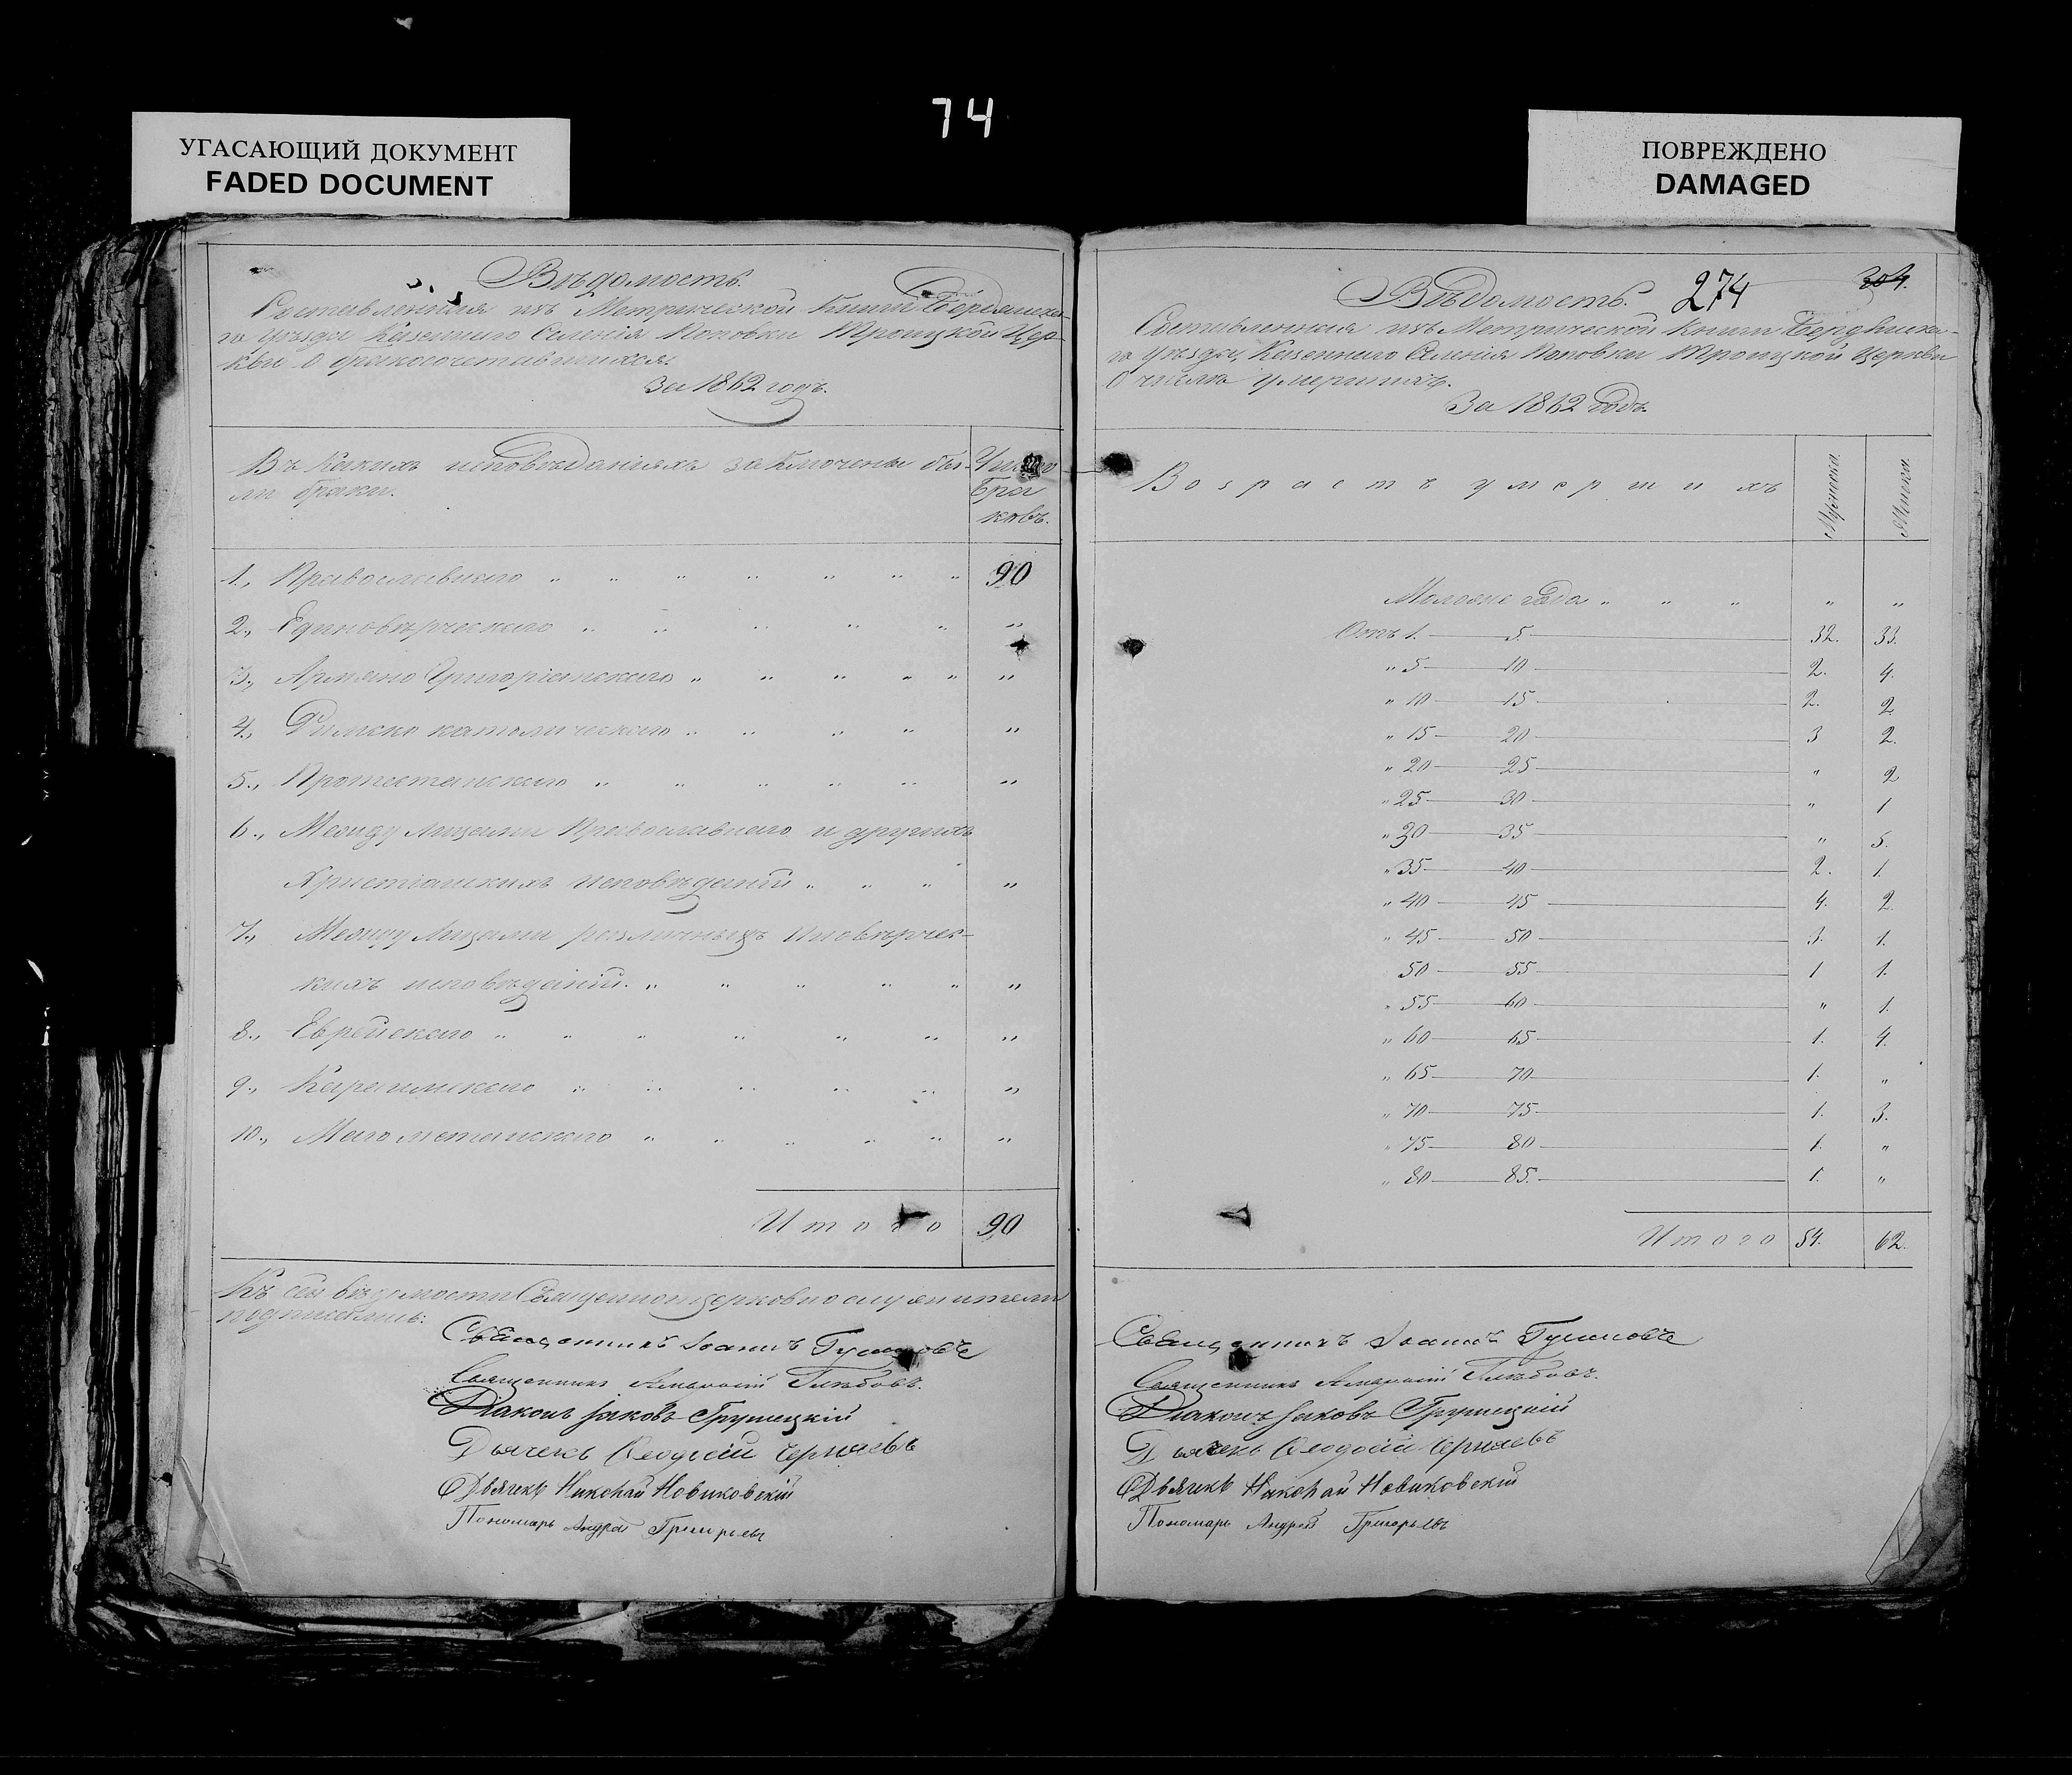 74
УГАСАЮЩИЙ ДОКУМЕНТ
FADED DOCUMENT
ПОВРЕЖДЕНО
DAMAGED
Вѣдомость.
Составленная изъ Метрической Книги Бердянска-
го уѣзда Казеннаго Селенія Поповки Троицкой Цер-
кви о бракосочетавшихся.
За 1862 годъ.
Въ какихъ исповѣданіяхъ заключены бы-
ли браки.
Число
Бра
ковъ.
1., Православнаго „ „ „ „ „ „ „ 90
2., Единовѣрческаго „ „ „ „ „ „
3., Армяно Григоріанскаго „ „ „ „ „ „
4., Римско католическаго „ „ „ „ „
5., Протестанскаго „ „ „ „ „ „
6., Между лицами Православнаго и другихъ
Христіанскихъ исповѣданій „ „ „ „
7., Между лицами различныхъ Иновѣрчес-
кихъ исповѣданій. „ „ „ „ „ „
8., Еврейскаго „ „ „ „ „ „ „
9., Караимскаго „ „ „ „ „ „
10., Магометанскаго „ „ „ „ „ „
Итого 90
Къ сей вѣдомости Священноцерковнослужители
подписались:
Священникъ Іоаннъ
Священникъ Амвросій Глѣбовъ.
Діаконъ Іаковъ Грушецкій
Дьячекъ Ѳеодосій Черняевъ
Дьячекъ Николай Новиковскій
Пономарь Андрей Григорьевъ
274
304.
Вѣдомость.
Составленная изъ Метрической Книги Бердянска-
го Уѣзда, Казеннаго Селенія Поповки Троицкой Церкви
О числѣ умершихъ.
За 1862 годъ.
Возрастъ умершихъ
Мужеска.
Женска.
Моложе года „ „ „ „ „
Отъ 1. 5. 32. 33.
„ 5 10 2. 4.
„ 10 15 2. 2
„ 15 20 3 2.
„ 20 25 „ 2
„ 25 30 „ 1
„ 30 35 „ 5.
„ 35 40 2. 1.
„ 40 45 4. 2.
„ 45 50 3. 1.
50 55 1 1.
„ 55 60 „ 1.
„ 60 65 1. 4.
„ 65 70 1. „
„ 70 75 1. 3.
„ 75 80 1. „
„ 80 85. 1. „
Итого 54. 62.
Священникъ Іоаннъ
Священникъ Амвросій Глѣбовъ.
Діаконъ Іаковъ Грушецкій
Дьячекъ Ѳеодосій Черняевъ
Дьячекъ Николай Новиковскій
Пономарь Андрей Григорьевъ